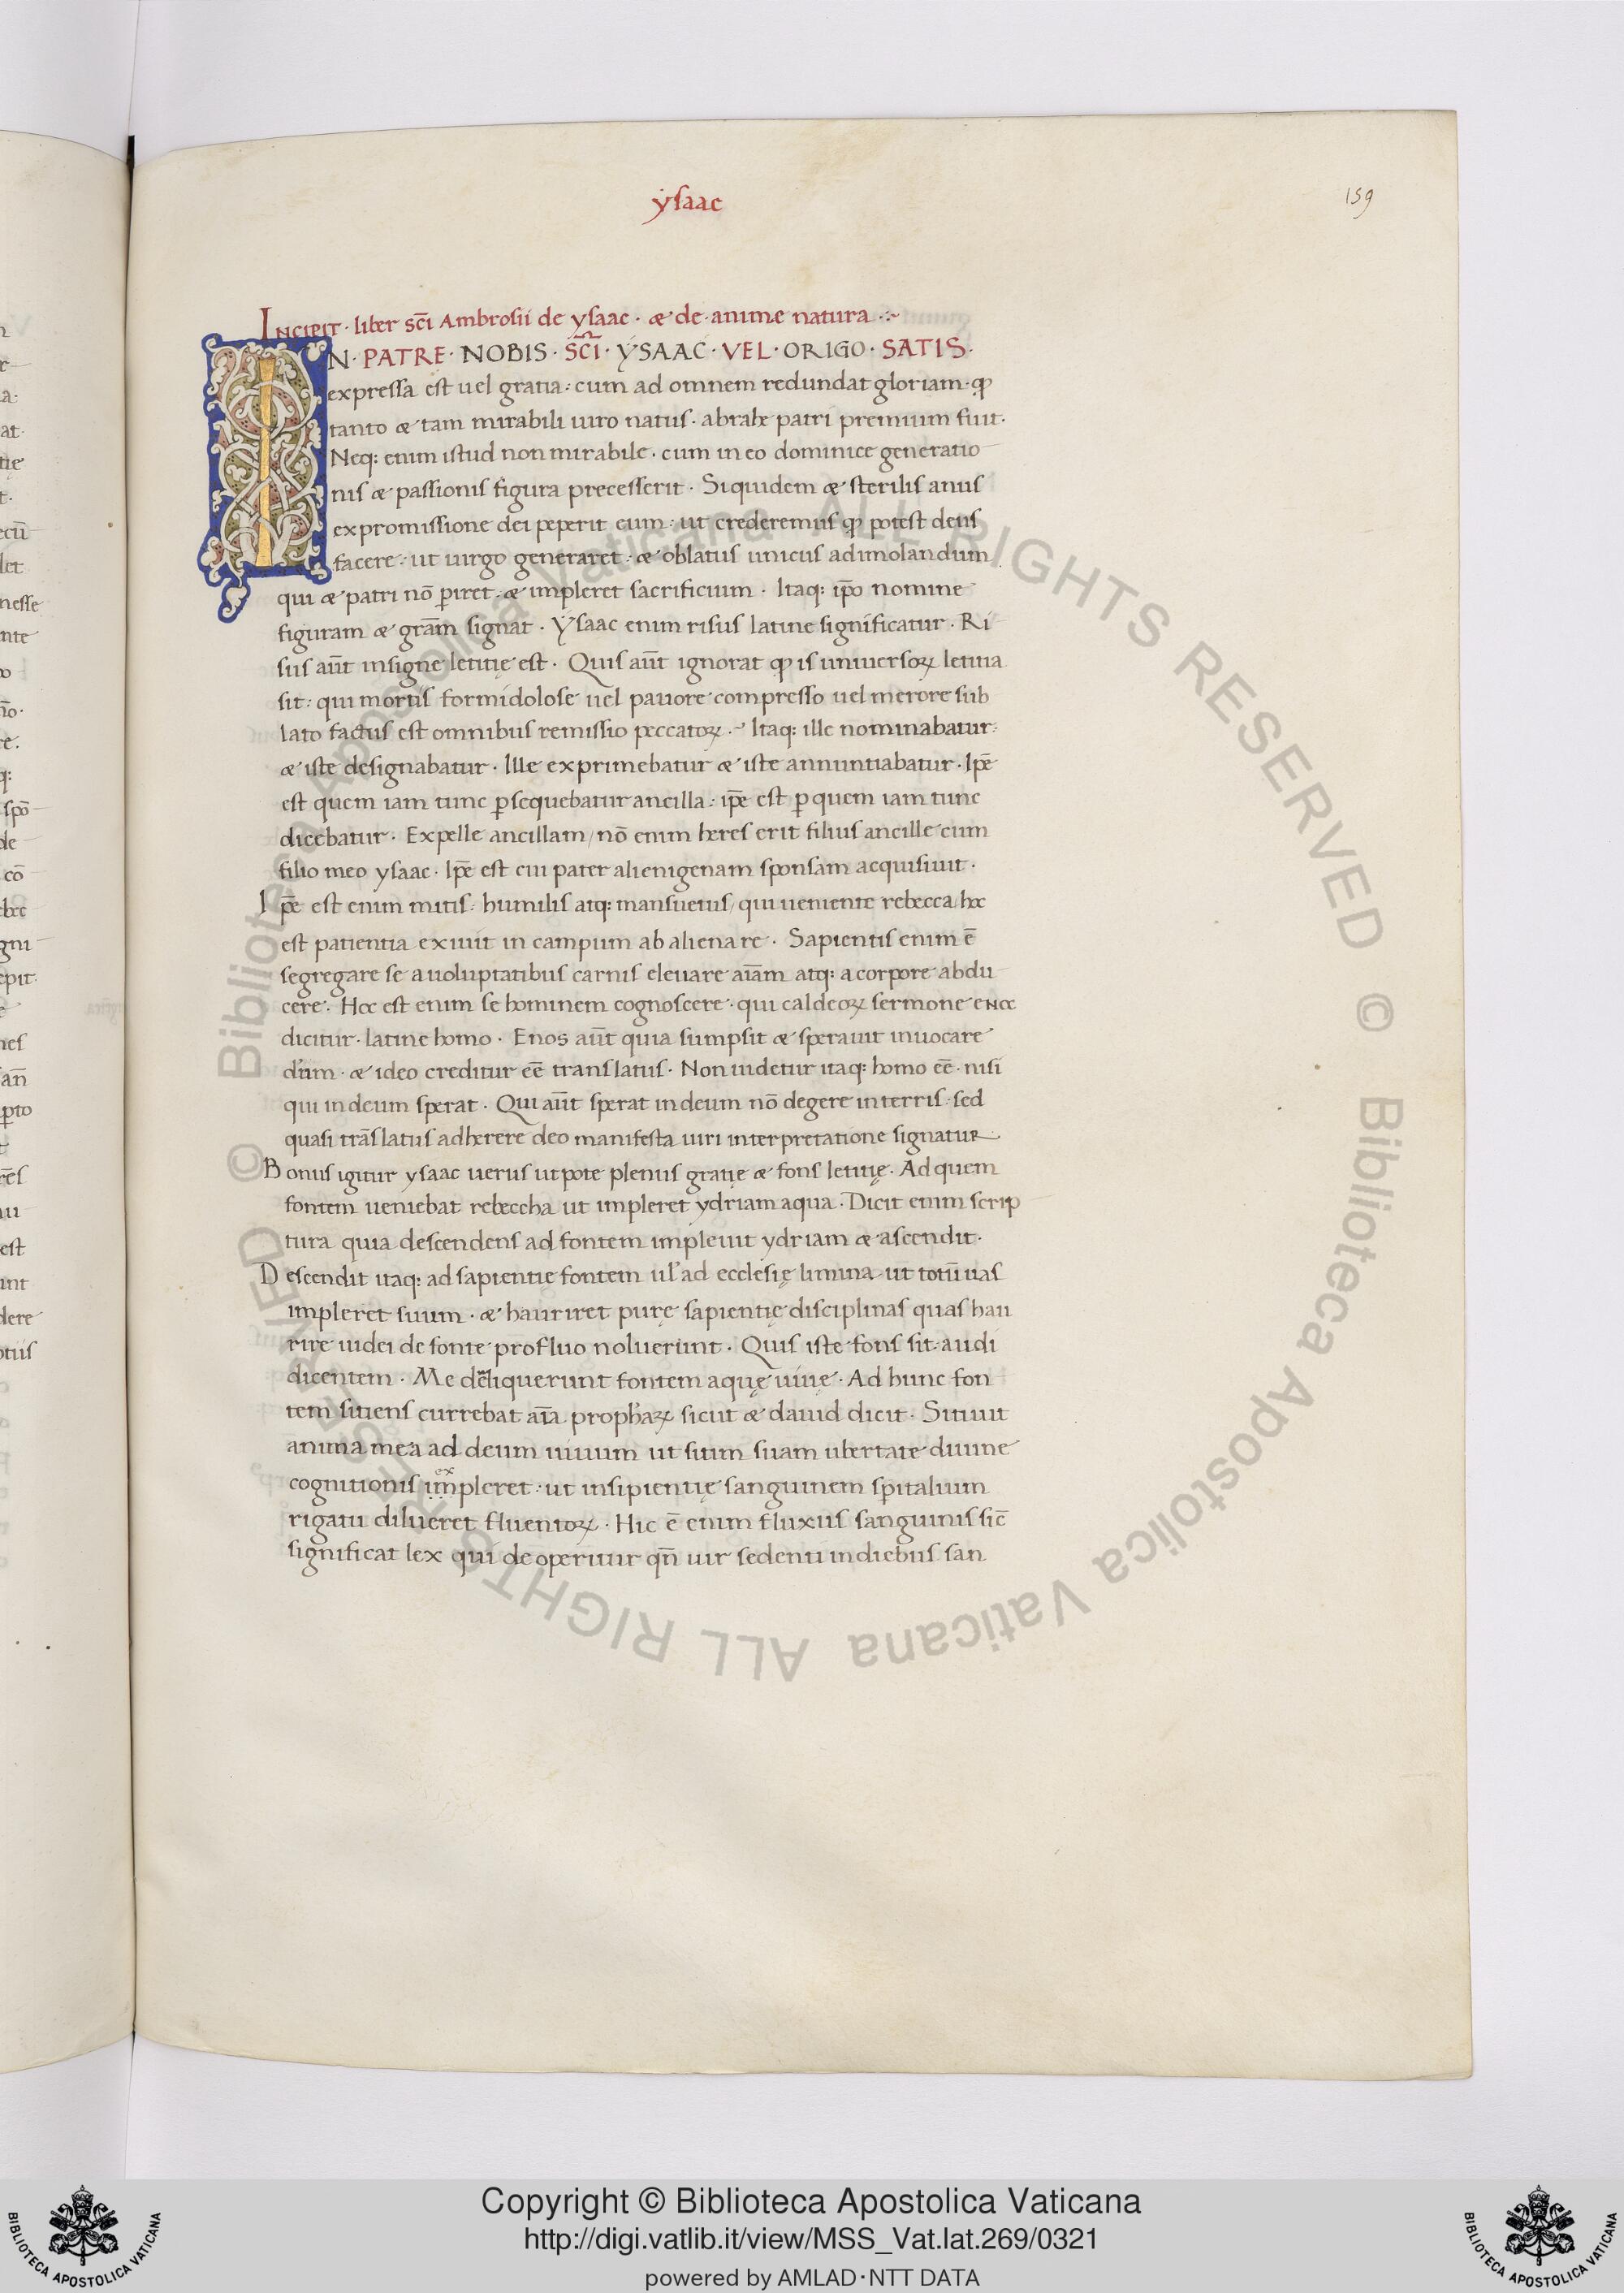 ysaac
159
Incipit · liber sc̄i Ambrosii de ysaac · & de anime natura
IN · PATRE · NOBIS · SC̄I · YSAAC · VEL · ORIGO · SATIS ·
expressa est uel gratia : cum ad omnem redundat gloriam · ꝙ
tanto & tam mirabili uiro natus · abrahe patri premium fuit ·
Neq: enim istud non mirabile · cum in eo dominice generatio
nis & passionis figura precesserit · Siquidem & sterilis anus
ex promissione dei peperit eum : ut crederemus ꝙ potest deus
facere : ut uirgo generaret : & oblatus unicus ad imolandum
qui & patri nō ꝑiret · & impleret sacrificium · Itaq: ip̄o nomine
figuram & grām signat · Ysaac enim risus latine significatur · Ri
sus aūt insigne letitię est · Quis aūt ignorat ꝙ is uniuersoꝝ letitia
sit : qui mortis formidolose uel pauore compresso uel merore sub
lato factus est omnibus remissio peccatoꝝ · Itaq: ille nominabatur :
& iste designabatur · Ille exprimebatur & iste annuntiabatur · Ip̄e
est quem iam tunc ꝑsequebatur ancilla : ip̄e est ꝑ quem iam tunc
dicebatur · Expelle ancillam / nō enim heres erit filius ancille cum
filio meo ysaac · Ip̄e est cui pater alienigenam sponsam acquisiuit ·
Ip̄e est enim mitis : humilis atq: mansuetus / qui ueniente rebecca / hoc
est patientia exiuit in campum ab alienare · Sapientis enim ē
segregare se a uoluptatibus carnis eleuare aīam atq: a corpore abdu
cere · Hoc est enim se hominem cognoscere · qui caldeoꝝ sermone enoc
dicitur · latine homo · Enos aūt quia sumpsit & sperauit inuocare
dūm · & ideo creditur eē translatus · Non uidetur itaq: homo eē · nisi
qui in deum sperat · Qui aūt sperat in deum nō degere in terris · sed
quasi trāslatus adherere deo manifesta uiri interpretatione signatur
Bonus igitur ysaac uerus utpote plenus gratię & fons letitię · Ad quem
fontem ueniebat rebeccha ut impleret ydriam aqua · Dicit enim scrip
tura quia descendens ad fontem impleuit ydriam & ascendit ·
Descendit itaq: ad sapientie fontem ul' ad ecclesię limina · ut totū uas
impleret suum · & hauriret purę sapientię disciplinas quas hau
rire iudei de fonte profluo noluerunt · Quis iste fons sit · audi
dicentem · Me dereliquerunt fontem aquę uiuę · Ad hunc fon
tem sitiens currebat aīa prophaꝝ sicut & dauid dicit · Sitiuit
anima mea ad deum uiuum ut sitim suam ubertate diuine
ex
cognitionis impleret : ut insipientię sanguinem spitalium
rigatu dilueret fluentoꝝ · Hic ē enim fluxus sanguinis sic̄
significat lex qui de operitur qn̄ uir sedenti in diebus san
Copyright © Biblioteca Apostolica Vaticana
http://digi.vatlib.it/view/MSS_Vat.lat.269/0321
powered by AMLAD·NTT DATA
BIBLIOTECA APOSTOLICA VATICANA
BIBLIOTECA APOSTOLICA VATICANA
© Biblioteca Apostolica Vaticana ALL RIGHTS RESERVED
© Biblioteca Apostolica Vaticana ALL RIGHTS RESERVED